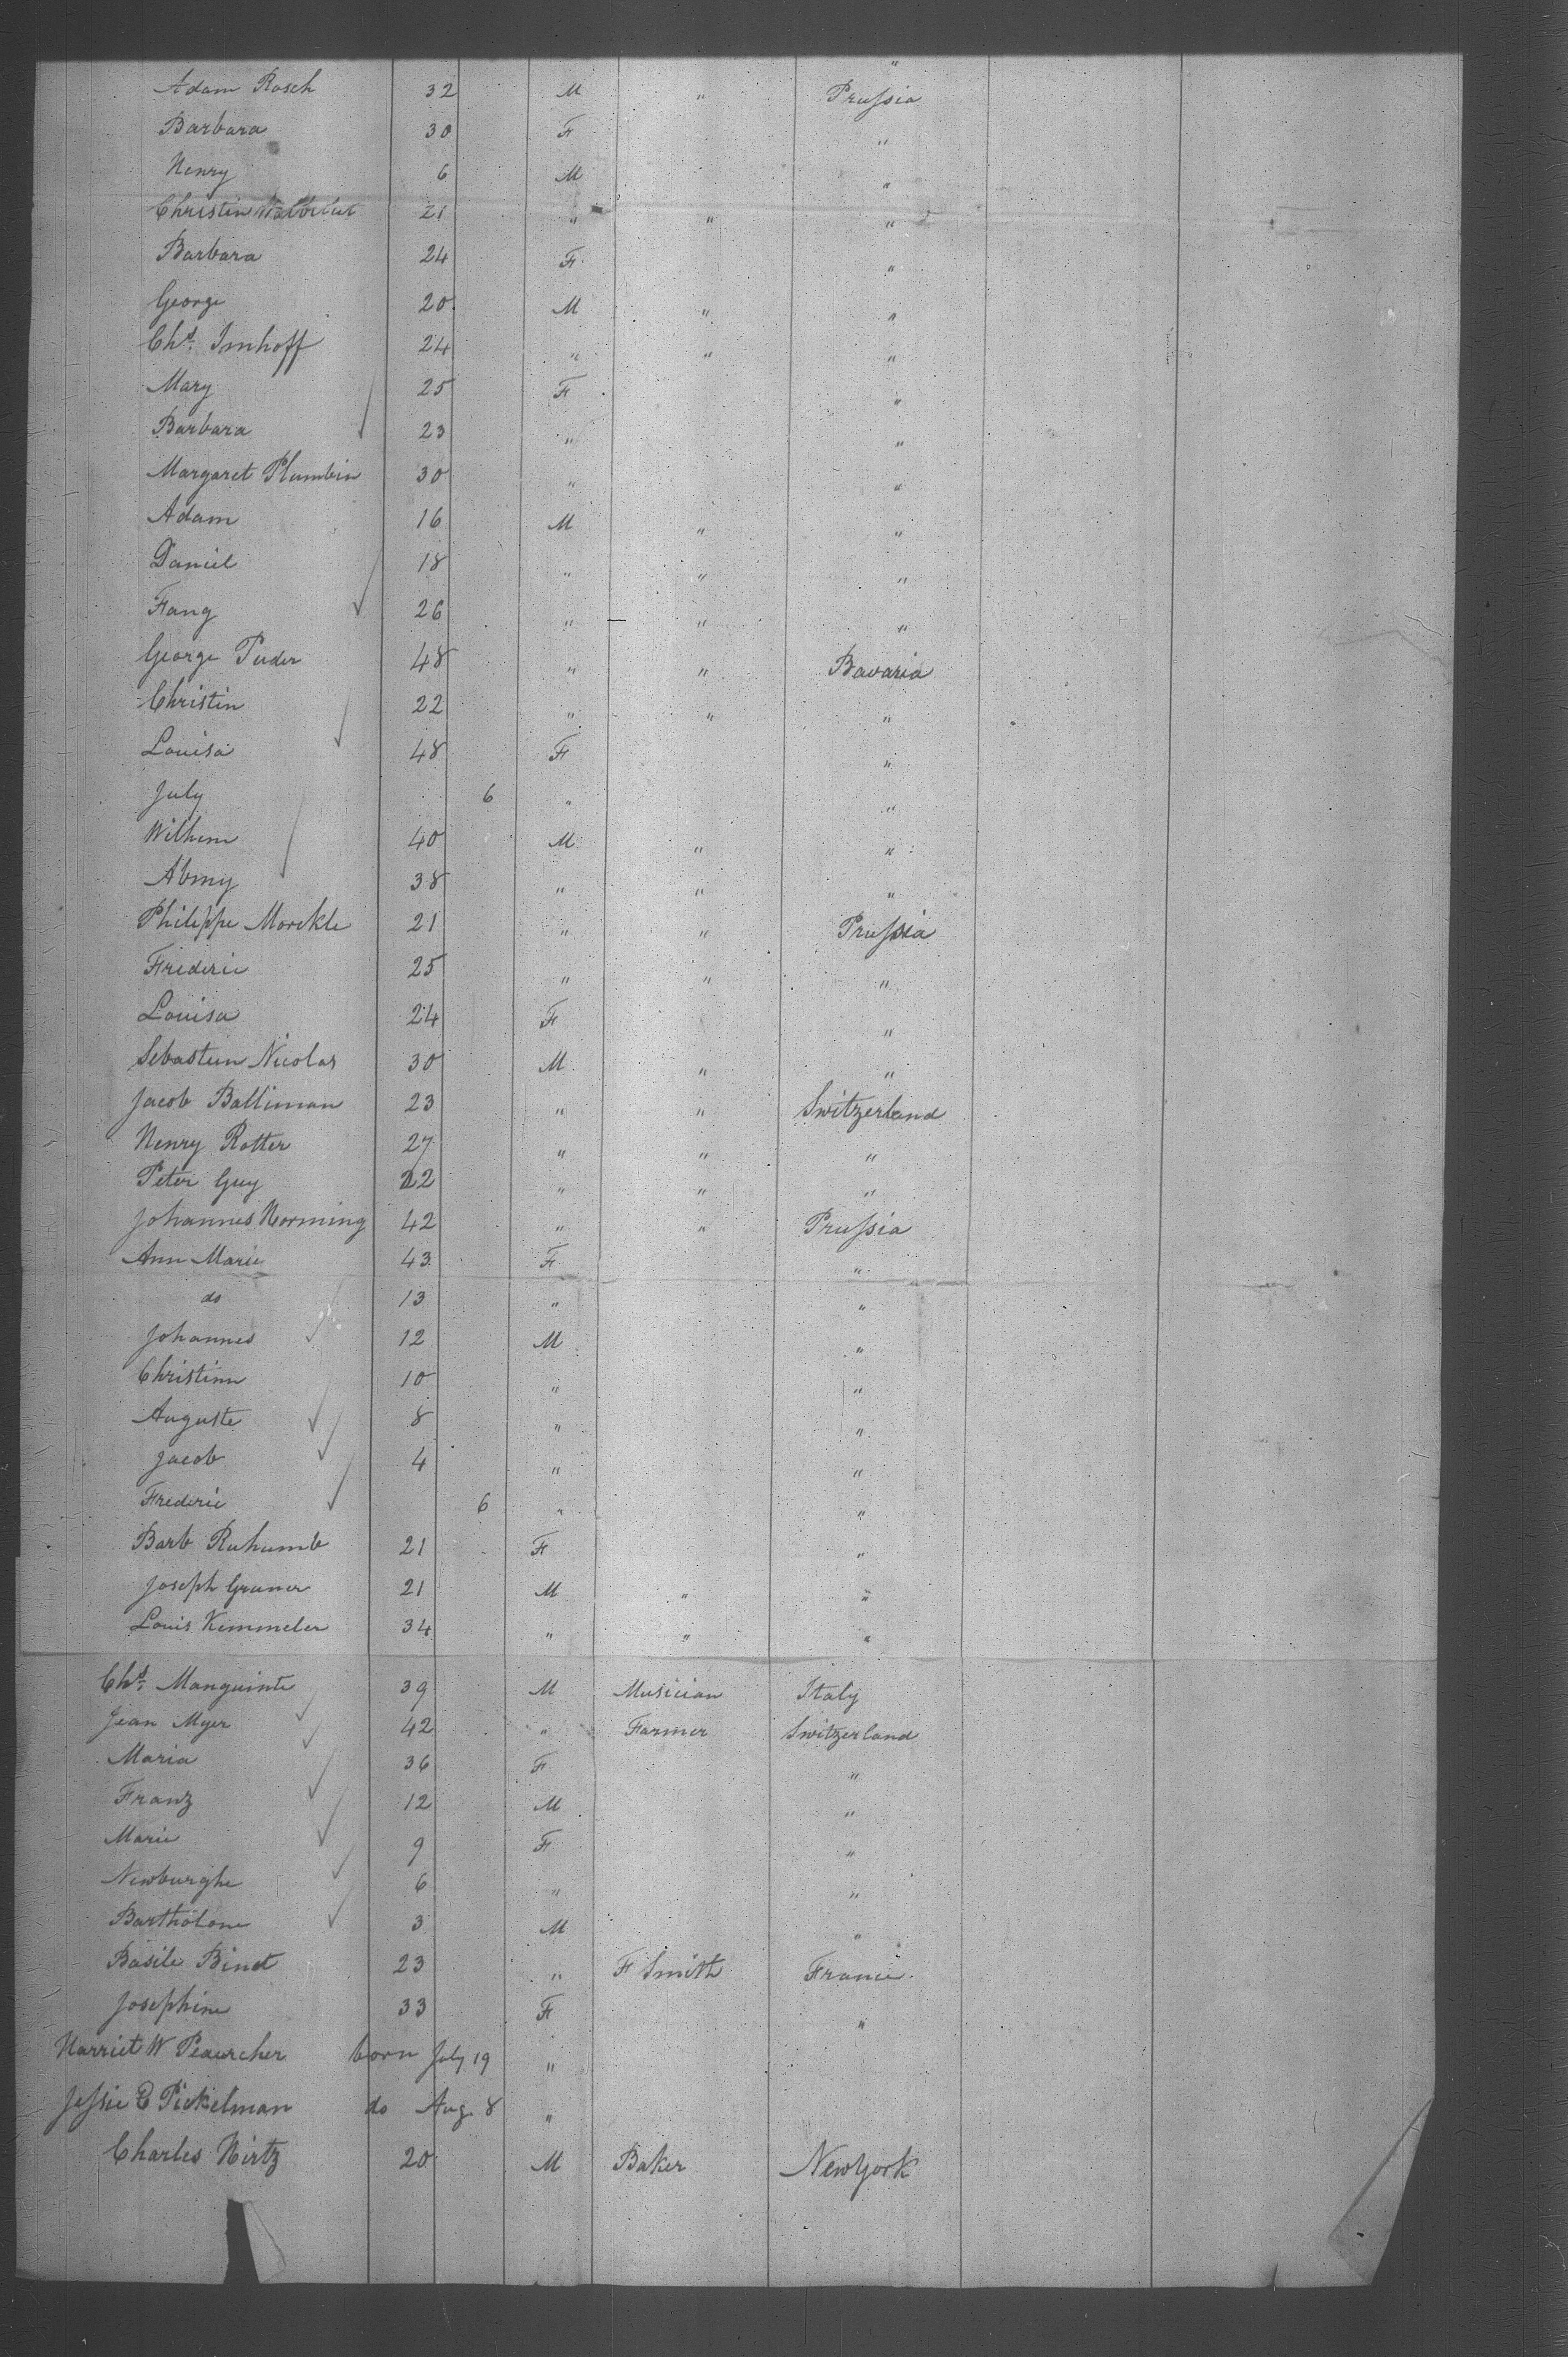 "
Adam Rosch 32 M " Prussia
Barbara 30 F "
Henry 6 M "
Christin 21 " " "
Barbara 24 F "
George 20 M " "
Chs. Imhoff 24 " " "
Mary 25 F "
Barbara 23 " "
Margaret Plumbin 30 " "
Adam 16 M " "
Daniel 18 " " "
Fang 26 " " "
George Puder 48 " " Bavaria
Christin 22 " " "
Louisa 48 F "
July 6 " "
Wilhem 40 M " "
Abmy 38 " " "
Philippe Morckle 21 " " Prussia
Frederic 25 " " "
Louisa 24 F "
Sebastien Nicolas 30 M " "
Jacob Balliman 23 " " Switzerland
Henry Rotter 27 " " "
Peter Guy 22 " " "
Johannes Horming 42 " " Prussia
Ann Marie 43 F "
do 13 " "
Johannes 12 M "
Christinn 10 " "
Auguste 8 " "
Jacob 4 " "
Frederic 6 " "
Barb Ruhumb 21 F "
Joseph Gruner 21 M " "
Louis Kemmeler 34 " " "
Chs. Manguinte 39 M Musician Italy
Jean Myer 42 " Farmer Switzerland
Maria 36 F "
Franz 12 M "
Marie 9 F "
Newburghe 6 " "
Bartholome 3 M "
Basile Binet 23 " F Smith France.
Josephine 33 F "
Harriet W Peaurcher born July 19 "
Jessie E Pickelman do Aug. 8 "
Charles Hirtz 20 M Baker New York